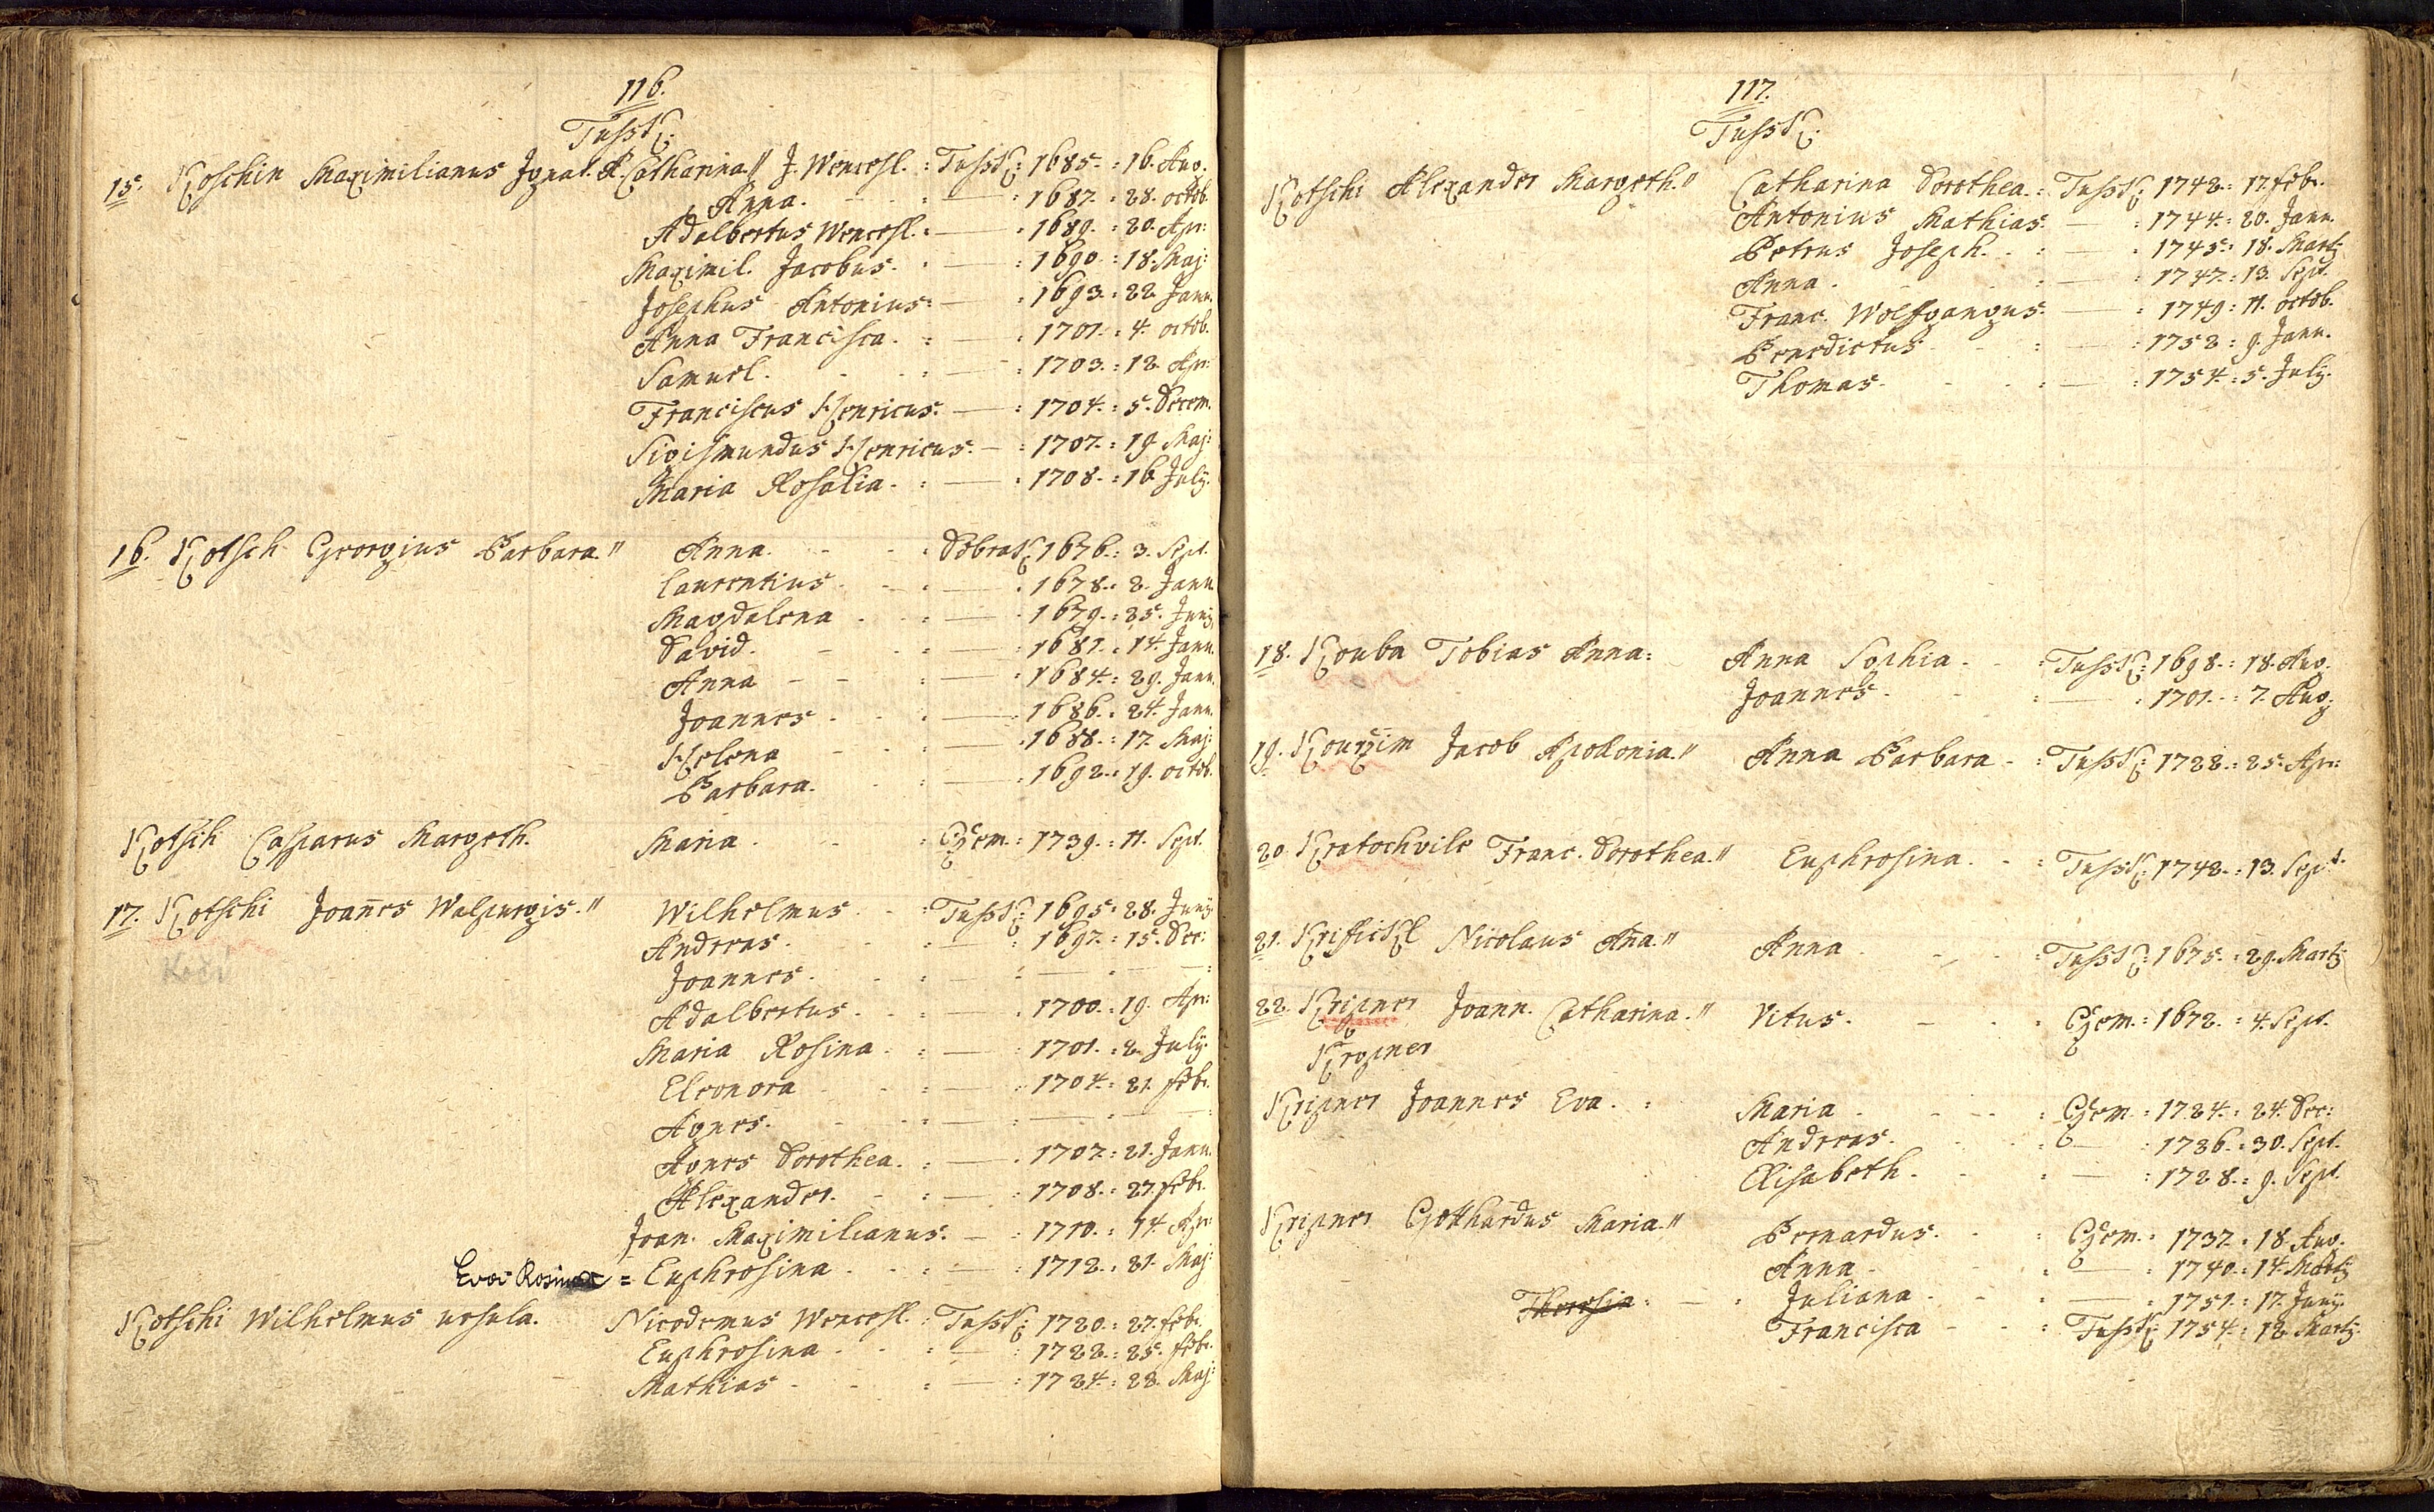 116.
Tussk:
15. Koschin Maximilianus Ignat. A. Catharina// J. Wencesl. : Tussk: 1685. : 16. Aug.
Anna. - - : — : 1687. : 28. octob.
Adalbertus Wencesl. : — : 1689. : 20. Apr:
Maximil. Jacobus. : — : 1690. : 18. Maj:
Josephus Antonius: — : 1693. : 22. Janu.
Anna Francisca. : — : 1701. : 4. octob.
Samuel. - - : — : 1703. : 12. Apr:
Franciscus Henricus. — : 1704. : 5. Decem.
Sigismundus Henricus. — : 1707. : 19. Maj:
Maria Rosalia. : — : 1708. : 16. July.
16. Kotsch Georgius Barbara." Anna. - - : Dobrak: 1676. : 3. Sept.
Laurentius - - : — : 1678. : 2. Janu.
Magdalena - : — : 1679. : 25. Juny
David. - - : — : 1681. : 14. Janu.
Anna - - : — : 1684. : 29. Janu.
Joannes - - : — : 1686. : 24. Janu.
Helena - - : — : 1688. : 17. Maj:
Barbara. - : — : 1692. : 19. octob.
Kotsch Casparus Margeth. Maria - - : Czem. : 1739. : 11. Sept.
17. Kotschi Joañes Walpurgis." Wilhelmus - : Tussk: 1695. : 28. Juny.
Andreas. - : — : 1697. : 15. Dec:
Kočí Joannes. - : — : — : —
Adalbertus. - : — : 1700. : 19. Apr:
Maria Rosina. : — : 1701. : 2. July.
Eleonora - : — : 1704. : 21. febr.
Agnes. - : — : — : —
Agnes Dorothea. : — : 1707. : 21. Janu.
Alexander. - : — : 1708. : 27. febr.
Joan. Maximilianus. — : 1710. : 14. Apr:
Eva Rosina = Euphrosina - : — : 1712. : 21. Maj:
Kotschi Wilhelmus ursula. Nicodemus Wencesl. : Tussk: 1720. : 27. febr.
Euphrosina - : — : 1722. : 25. febr.
Mathias - - : — : 1724. : 22. Maj:
117.
Tussk:
Kotschi Alexander Margeth." Catharina Dorothea. : Tussk: 1742. : 17. febr.
Antonius Mathias. — : 1744. : 20. Janu.
Petrus Joseph. - : — : 1745. : 18. Martj
Anna - : — : 1747. : 13. Sept.
Franc. Wolfgangus. — : 1749. : 11. octob.
Benedictus - : — : 1752. : 9. Janu.
Thomas. - : — : 1754. : 5. July.
18. Kouba Tobias Anna: Anna Sophia - : Tussk: 1698. : 18. Aug.
Joannes. - : — : 1701. : 7. Aug.
19. Kouržim Jacob Apolonia." Anna Barbara - : Tussk: 1722. : 25. Apr:
20. Kratochvile Franc. Dorothea." Euphrosina. - : Tussk: 1742. : 13. Sept.
21. Krific Nicolaus Añna." Anna - - : Tussk: 1675. : 29. Martj
22. Kripner Joann. Catharina." Vitus. - - : Czem. : 1672. : 4. Sept.
Krogner
Kripner Joannes Eva. : Maria - - : Czem : 1724. : 24. Dec:
Andreas. - : — : 1726. : 30. Sept.
Elisabeth. - : — : 1728. : 9. Sept.
Kripner Gotthardus Maria." Bernardus. - : Czem. : 1737. : 18. Aug.
Anna - : — : 1740. : 14. Martj
Theresia : — : Juliana - : — : 1751. : 17. Juny.
Francisca - : Tussk: 1754. : 12. Martj.